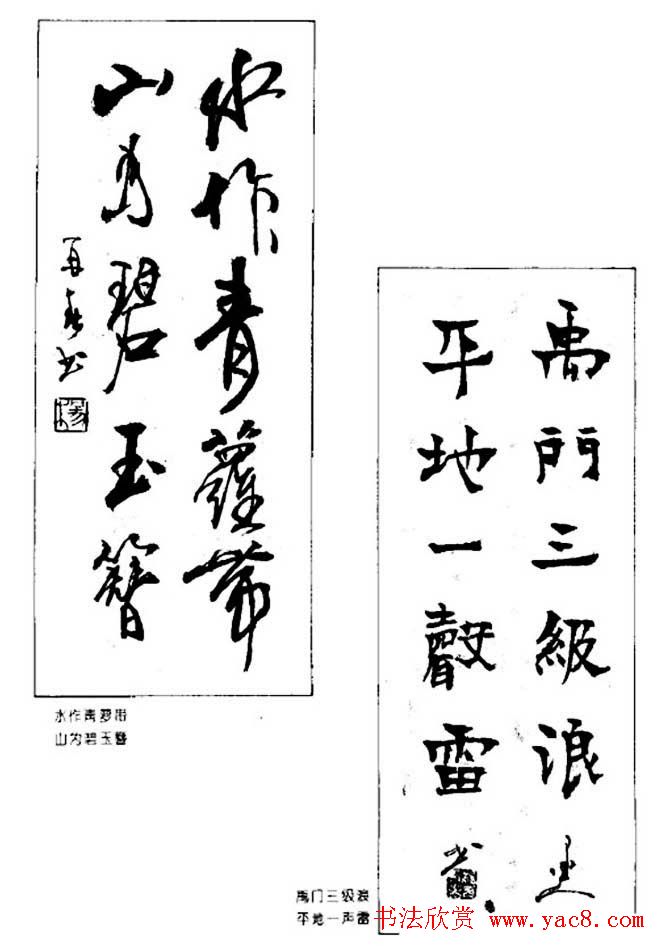 水作青蘿帶
山为碧玉簪
水作青萝带
山为碧玉簪
禹門三級浪
平地一聲雷
禹门三级浪
平地一声雷
书法欣赏 www.yac8.com